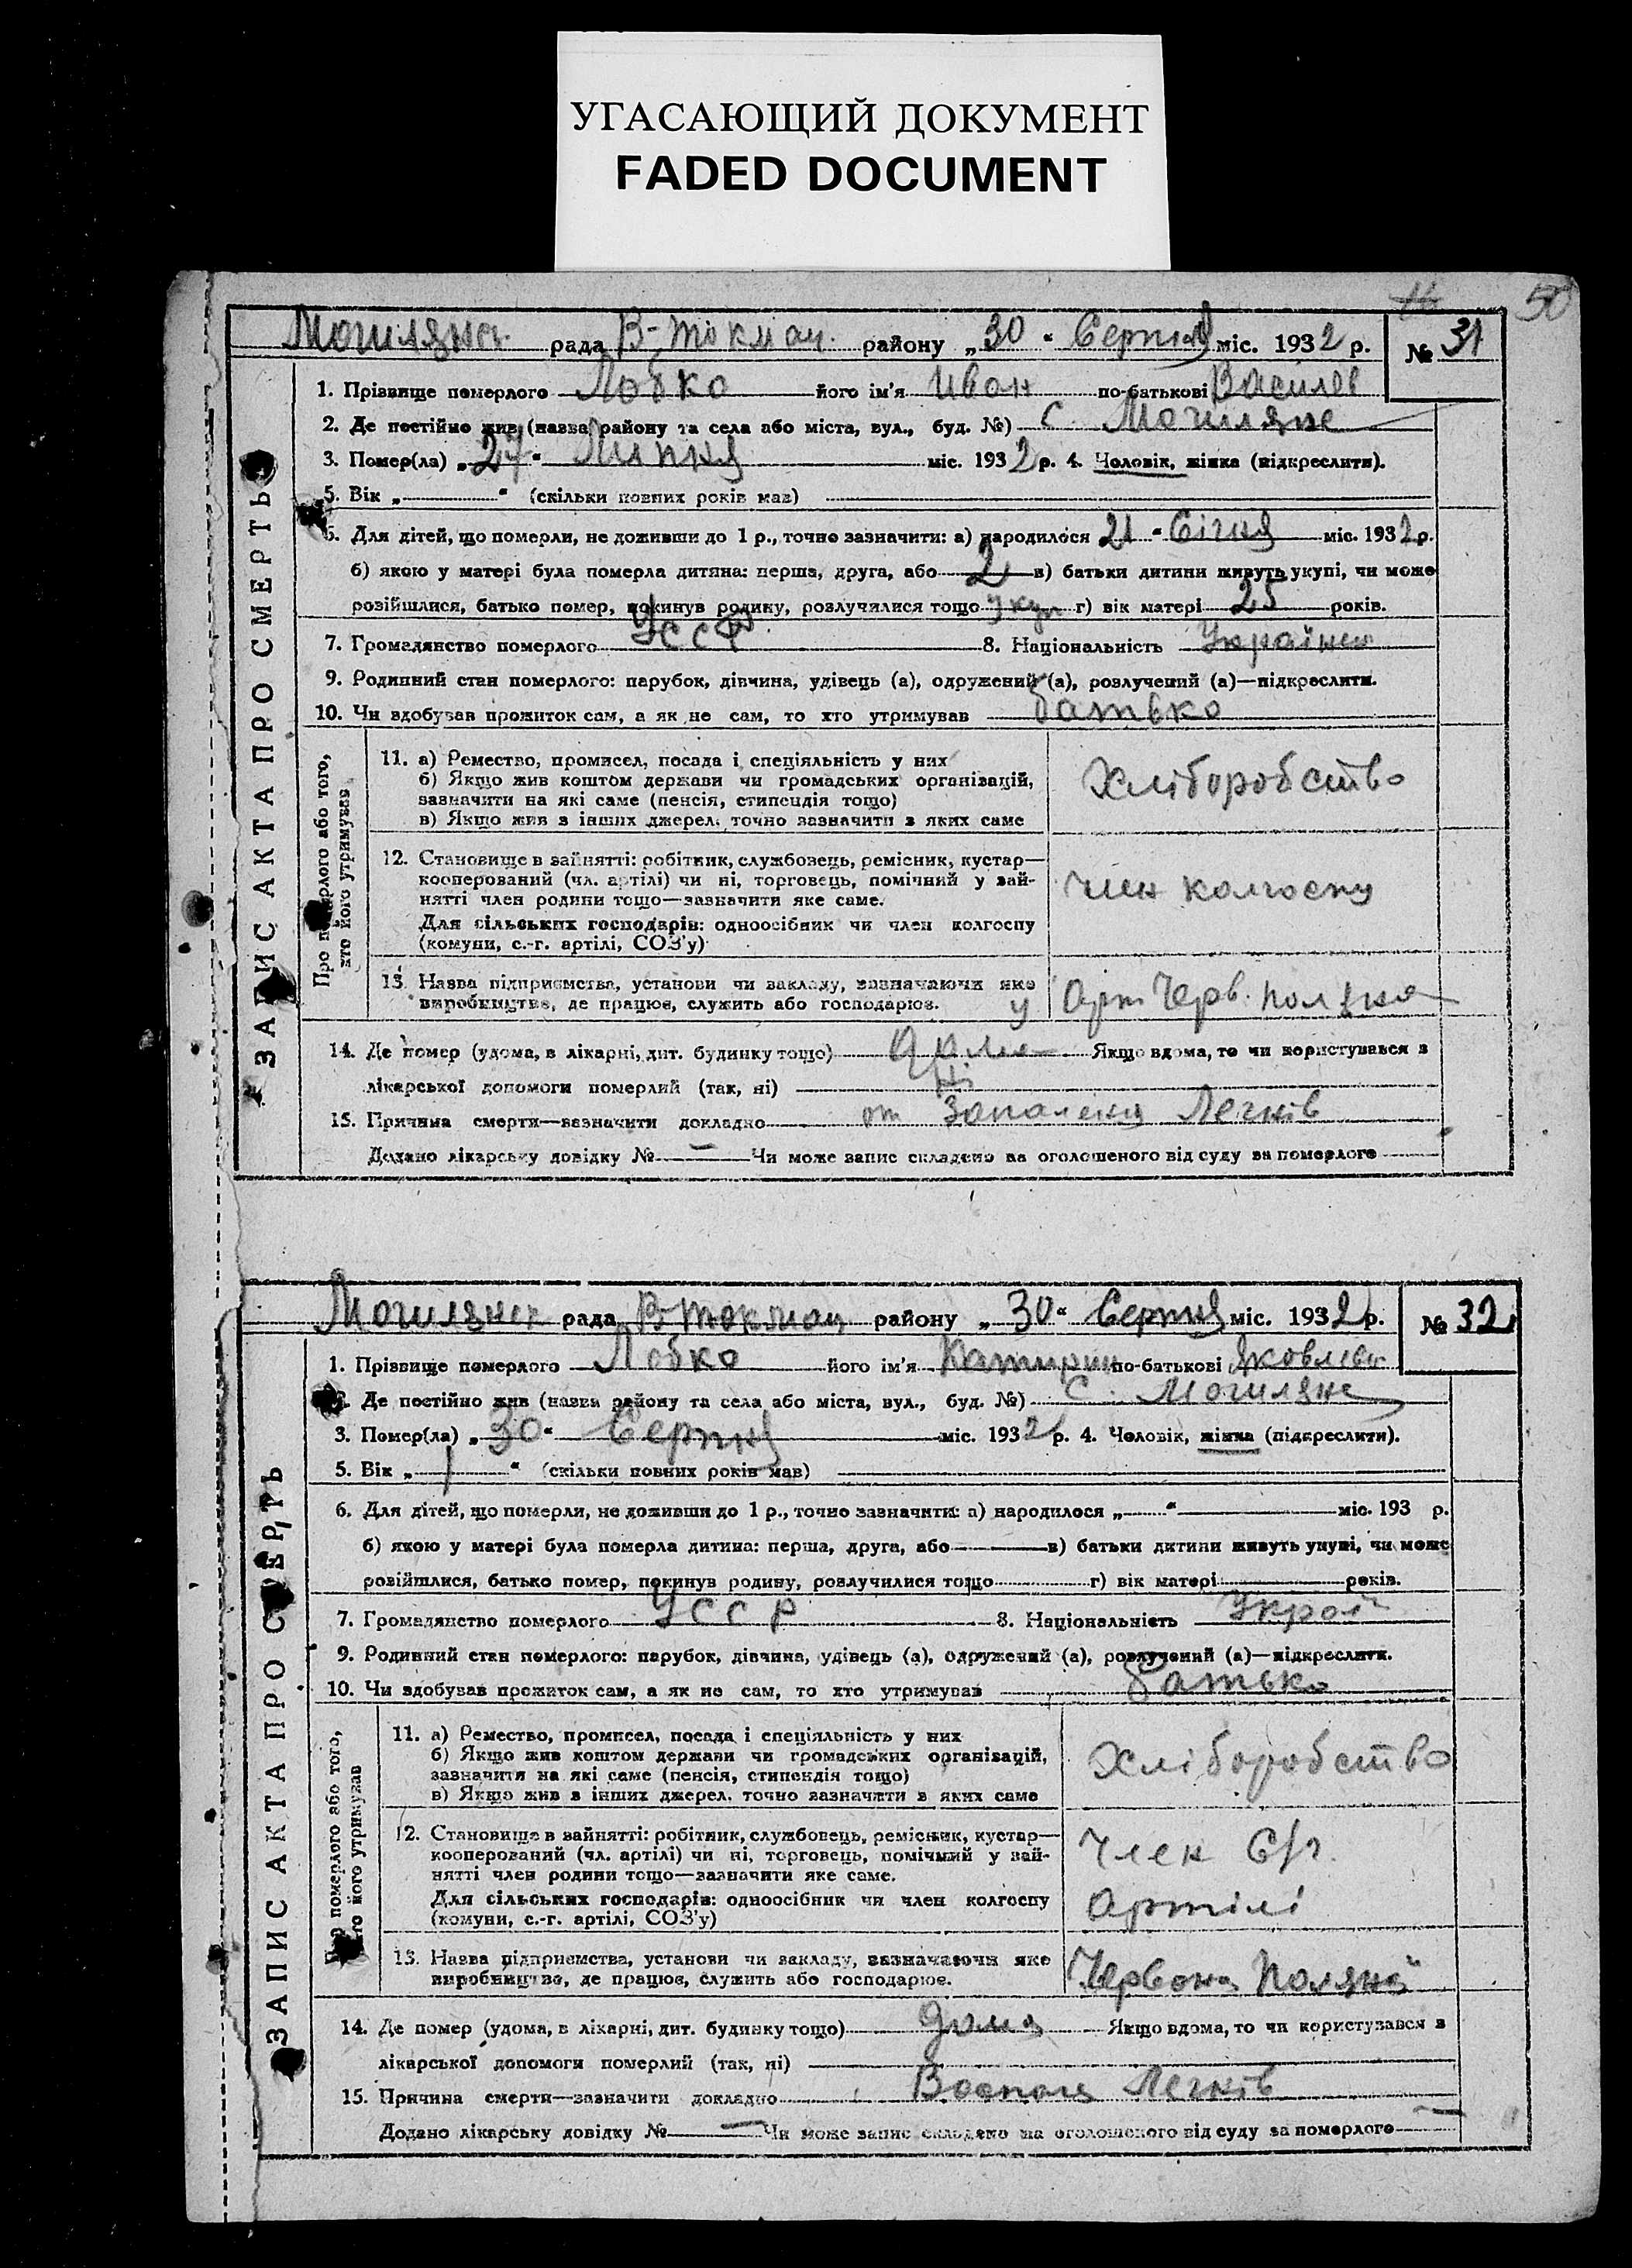 УГАСАЮЩИЙ ДОКУМЕНТ
FADED DOCUMENT
50
Могиляна рада В-Токмац. району „30" Серпня міс. 1932 р. № 31
1. Прізвище померлого Лобко його ім'я Иван по-батькові Василев
2. Де постійно жив (назва району та села або міста, вул., буд. №) с. Могиляне
3. Помер(ла) „27" Липня міс. 1932 р. 4. Чоловік, жінка (підкреслити).
5. Вік „ " (скільки повних років мав)
6. Для дітей, що померли, не доживши до 1 р., точно зазначити: а) народилося 21 " Січня міс. 1932 р.
б) якою у матері була померла дитина: перша, друга, або 2 в) батьки дитини живуть укупі, чи може
розійшлися, батько помер, покинув родину, розлучилися тощо укуп г) вік матері 25 років.
7. Громадянство померлого УССР 8. Національність
9. Родинний стан померлого: парубок, дівчина, удівець (а), одружений (а), розлучений (а)—підкреслити.
10. Чи здобував прожиток сам, а як не сам, то хто утримував батько
ЗАПИС АКТА ПРО СМЕРТЬ
Про померлого або того,
хто його утримував
11. а) Ремество, промисел, посада і спеціяльність у них
б) Якщо жив коштом держави чи громадських організацій,
зазначити на які саме (пенсія, стипендія тощо)
в) Якщо жив з інших джерел, точно зазначити з яких саме
Хліборобство
12. Становище в зайнятті: робітник, службовець, ремісник, кустар—
кооперований (чл. артілі) чи ні, торговець, помічний у зай-
нятті член родини тощо—зазначити яке саме.
Для сільських господарів: одноосібник чи член колгоспу
(комуни, с.-г. артілі, СОЗ'у)
член колгоспу
13. Назва підприємства, установи чи закладу, зазначаючи яке
виробництво, де працює, служить або господарює.
у Арт Черв. Поляна
14. Де помер (удома, в лікарні, дит. будинку тощо) дома Якщо вдома, то чи користувався з
лікарської допомоги померлий (так, ні) Ні
15. Причина смерти—зазначити докладно от Запаленя Легків
Додано лікарську довідку № — Чи може запис складено на оголошеного від суду за померлого
Могилянск рада В-Токмац району „30" Серпня міс. 1932 р. № 32
1. Прізвище померлого Лобко його ім'я Катирин по-батькові Яковлев
2. Де постійно жив (назва району та села або міста, вул., буд. №) С. Могиляне
3. Помер(ла) „30" Серпня міс. 1932 р. 4. Чоловік, жінка (підкреслити).
5. Вік „1" (скільки повних років мав)
6. Для дітей, що померли, не доживши до 1 р., точно зазначити: а) народилося „ " міс. 193 р.
б) якою у матері була померла дитина: перша, друга, або в) батьки дитини живуть укупі, чи може
розійшлися, батько помер, покинув родину, розлучилися тощо г) вік матері років.
7. Громадянство померлого УССР 8. Національність Украї
9. Родинний стан померлого: парубок, дівчина, удівець (а), одружений (а), розлучений (а)—підкреслити.
10. Чи здобував прожиток сам, а як не сам, то хто утримував батько
ЗАПИС АКТА ПРО СМЕРТЬ
Про померлого або того,
хто його утримував
11. а) Ремество, промисел, посада і спеціяльність у них
б) Якщо жив коштом держави чи громадських організацій,
зазначити на які саме (пенсія, стипендія тощо)
в) Якщо жив з інших джерел, точно зазначити з яких саме
Хліборобство
12. Становище в зайнятті: робітник, службовець, ремісник, кустар—
кооперований (чл. артілі) чи ні, торговець, помічний у зай-
нятті член родини тощо—зазначити яке саме.
Для сільських господарів: одноосібник чи член колгоспу
(комуни, с.-г. артілі, СОЗ'у)
Член С/г.
Артілі
13. Назва підприємства, установи чи закладу, зазначаючи яке
виробництво, де працює, служить або господарює.
Червона Поляна
14. Де помер (удома, в лікарні, дит. будинку тощо) дома Якщо вдома, то чи користувався з
лікарської допомоги померлий (так, ні)
15. Причина смерти—зазначити докладно Легків
Додано лікарську довідку № — Чи може запис складено на оголошеного від суду за померлого —